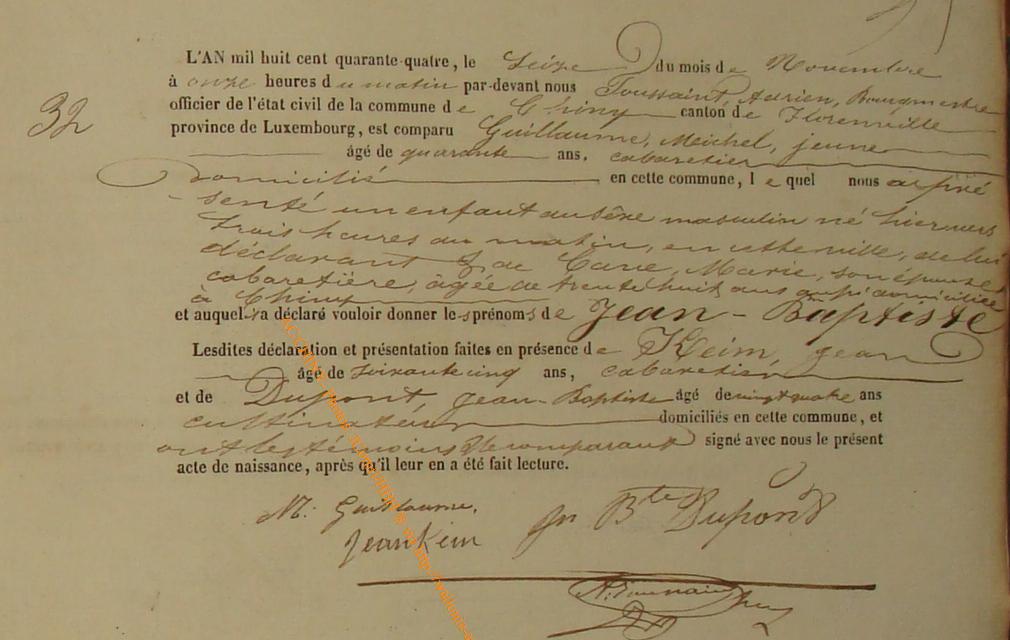 L'AN mil huit cent quarante-quatre, le Seize du mois de Novembre
à onze heures du matin par-devant nous Toussaint, Adrien, Bourgmestre
officier de l'état civil de la commune de Chiny canton de Florenville
32
province de Luxembourg, est comparu Guillaume, Meichel, jeune
âgé de quarante ans, cabaretier
domicilié en cette commune, lequel nous a pré
senté un enfant du sèxe masculin né hier vers
trois heures du matin, en cette ville, de lui
déclarant & de Marie, son épouse
cabaretière, âgée de trente huit ans aussi domiciliée
à Chiny
et auquel a déclaré vouloir donner les prénoms de Jean-Baptiste
Lesdites déclaration et présentation faites en présence de Keim, Jean
âgé de soixante cinq ans, cabaretier
et de Dupont, Jean-Baptiste âgé de vingt quatre ans
cultivateur domiciliés en cette commune, et
ont les témoins & le comparant signé avec nous le présent
acte de naissance, après qu'il leur en a été fait lecture.
M: Guillaume,
Jn Bte Dupont
Jean Keim
A. Toussaint